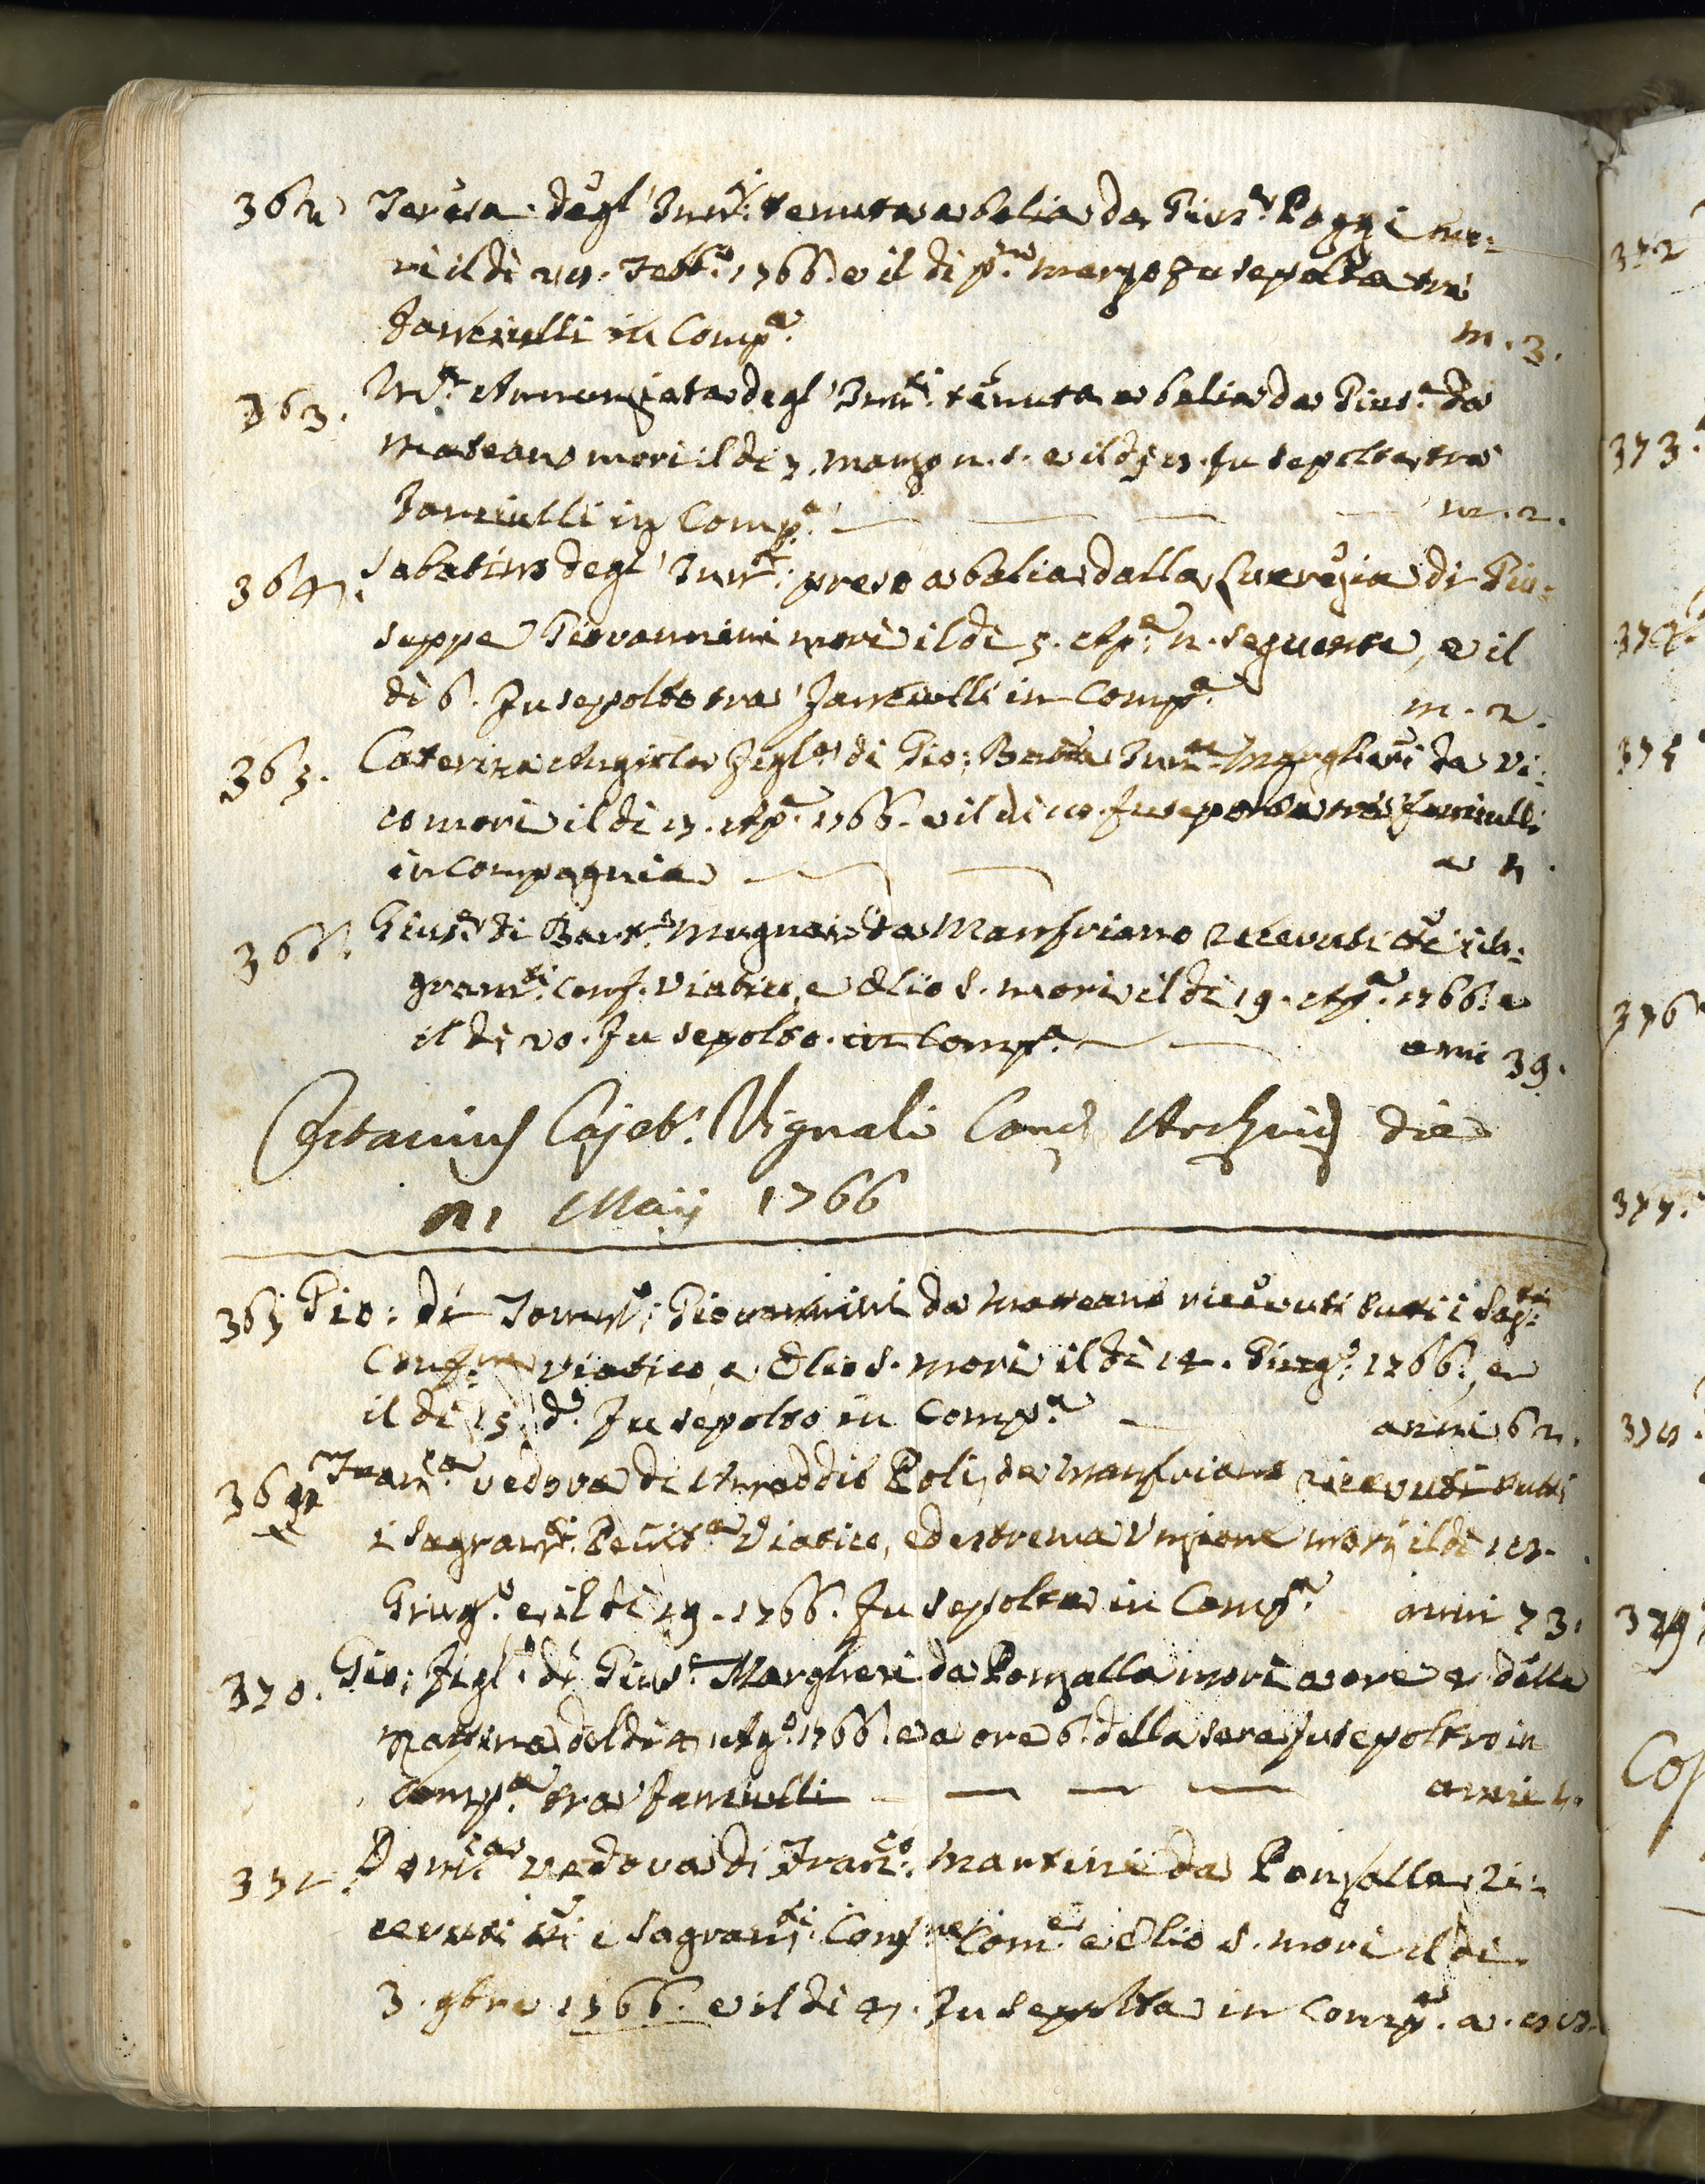 362 Teresa degl' Inn:ti tenuta a balia da Gius.e Poggi mo:
rì il dì 28. Febb.o 1766. e il dì p.mo marzo fu sepolta tra
fanciulli in Comp.a m. 3.
363. M.a Annunziata degl' Inn.ti tenuta a balia da Gius.e da
morì il dì 7. marzo n. s. e il dì fu sepolta tra
fanciulli in Comp.a m. 2.
364. Sabatino degl' Inn.ti preso a balia dalla Lucrezia di Giu:
seppe Giovannini morì il dì 5. Ap.e n. seguente, e il
dì 6. fu sepolto tra fanciulli in Comp.a m. 2.
365. Caterina Angiola figl.a di Gio: Batta Margheri da Vi:
co morì il dì 17. Ap.e 1766. e il dì fu sepolta tra fanciulli
in Compagnia a
366. Gius.e di Bart.o Mugnai da Manfriano ricevuti tti i Sa:
gram.ti Conf. Viatico, e Olio S. morì il dì 19. Ap.e 1766. e
il dì 20. fu sepolto in Comp.a anni 39.
Octavius Cajet.s Vignali Canc.s Archiep.s die
21 Maij 1766
367 Gio: di Giovannini da ricevuti tutti i Sag.ti
Conf.ne Viatico, e Olio S. morì il dì 14. Giug.o 1766., e
il dì 15. d.o fu sepolto in Comp.a anni 62.
Fran.ca vedova di Amaddio Poli da Manfriano ricevuti tutti
i Sagram.ti Penit.a Viatico, ed estrema Unzione morì il dì 18.
Giug.o e il dì 19. 1766. fu sepolta in Comp.a anni 73.
370. Gio: figl.o di Gius.e Margheri da Ronzalla morì a ore 4 della
mattina del dì 4 Ag.o 1766. e a ore 6. della sera fu sepolto in
Comp.a tra fanciulli anni
371. Dom.ca vedova di Fran.co Martini da Ronzalla ri:
cevuti tti i Sagram.ti Conf.ne Com.e e Olio S. morì il dì
3. 9bre 1766. e il dì 4. fu sepolta in Comp.a a.
372
373.
374.
375
376
377.
378.
379